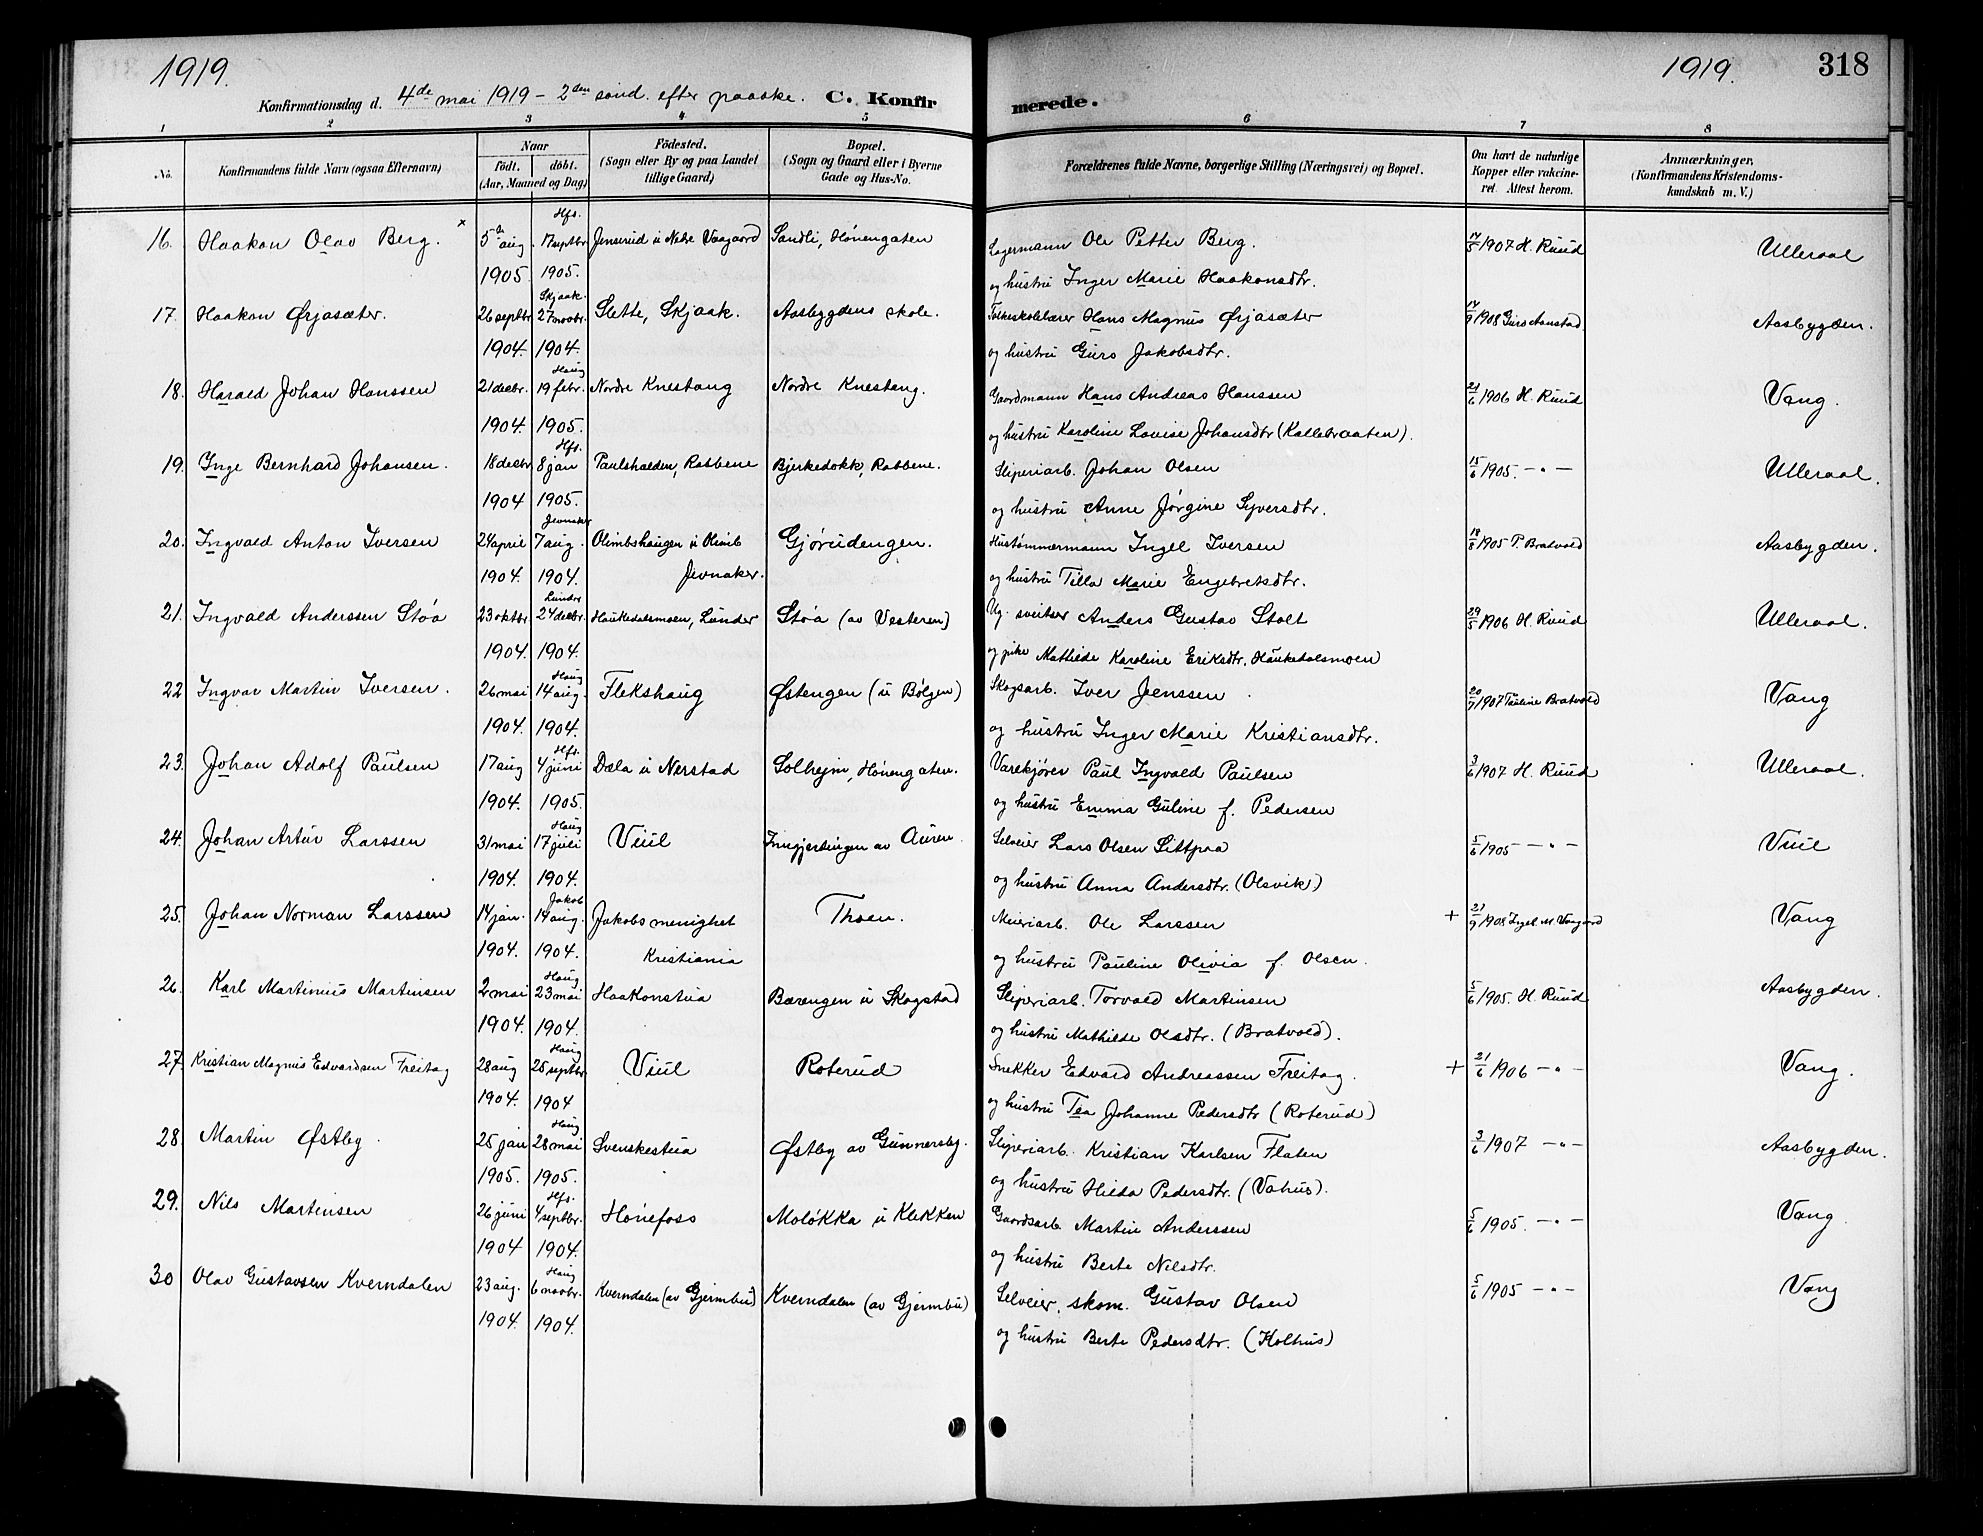 1919.
1919.
318
Konfirmationsdag d. 4de mai 1919 - 2den sønd. efter paaske. C. Konfir
merede.
1 2 3 4 5 6 7 8
No.
Konfirmandens fulde Navn (ogsaa Efternavn)
Naar
født. døbt.
(Aar, Maaned og Dag)
Fødested.
(Sogn eller By og paa Landet
tillige Gaard)
Bopæl.
(Sogn og Gaard eller i Byerne
Gade og Hus-No.
Forældrenes fulde Navne, borgerlige Stilling (Næringsvei) og Bopæl.
Om havt de naturlige
Kopper eller vakcine-
ret. Attest herom.
Anmærkninger,
(Konfirmandens Kristendoms-
kundskab m. V.)
Hfs.
16. Haakon Olav Berg. x 5te aug. 17 septbr. Jenserud u Nedre Vaagaard Sandli, Hönengaten Lagermann Ole Petter Berg. 14/5 1907 H. Ruud Ulleraal
1905 1905. og hustru Inger Marie Haakonsdtr.
Skjaak.
17. Haakon Ørjasæter. 26 septbr 27 novbr. Slette, Skjaak. Aasbygdens skole. Folkeskolelærer Hans Magnus Ørjasæter 14/9 1908 Guro Aanstad Aasbygden.
1904. 1904. og hustru Guro Jakobsdtr.
Haug
18. Harald Johan Hanssen 21 decbr. 19 febr. Nordre Knestang Nordre Knestang. Gaardmann Hans Andreas Hanssen 21/6 1906 H. Ruud Vang.
1904. 1905. og hustru Karoline Lovise Johansdtr (Kallebraaten).
Hfs.
19. Inge Bernhard Johansen. 18 decbr 8 jan Paulshalden, Rabbene Bjerkedokk, Rabbene. Sliperiarb. Johan Olsen 15/6 1905. -"- Ulleraal.
1904 1905. og hustru Anne Jörgine Syversdtr.
Jevnaker
20. Ingvald Anton Iversen 24 april 7 aug. Olimbshaugen u Olimb Gjörudengen. Hustömmermann Ingel Iversen 18/8 1905 P. Bratvold Aasbygden.
1904. 1904. Jevnaker. og hustru Tilla Marie Engebretsdtr.
Lunder
21. Ingvald Anderssen Stöa 23 oktbr. 24 decbr. Haukedalsmoen, Lunder Stöa (av Vesteren) Ug. sveitser Anders Gustav Stolt 29/5 1906 H. Ruud Ulleraal.
1904. 1904. og pike Mathilde Karoline Eriksdtr. Haukedalsmoen
Haug
22 Ingvar Martin Iversen. 26 mai 14 aug. Flekshaug Østengen (u Bölgen) Skogsarb. Iver Jenssen 20/7 1907 Pauline Bratvold Vang
1904. 1904. og hustru Inger Marie Kristiansdtr.
Hfs.
23. Johan Adolf Paulsen 17 aug 4 juni Dæla u Nerstad Solhejm, Hönengaten. Varekjörer Paul Ingvald Paulsen 3/6 1907 H. Ruud Ulleraal.
1904. 1905. og hustru Emma Guline f. Pedersen
Haug
24. Johan Artur Larssen 31 mai 17 juli Viul Inngjerdingen av Auren. Selveier Lars Olsen Sittpaa 5/6 1905 -"- Viul
1904. 1904. og hustru Anna Andersdtr. (Olsvik)
Jakob
25. Johan Norman Larssen 14 jan. 14 aug. Jakobs menighet Thoen. Meieriarb. Ole Larssen + 21/9 1908 Ingel. M. Vaagaard Vang
1904. 1904. Kristiania og hustru Pauline Olivia f. Olsen.
Haug
26. Karl Martinius Martinsen 2 mai 23 mai Haakonstua Bærengen u Skogstad Sliperiarb. Torvald Martinsen 5/6 1905. H. Ruud Aasbygden.
1904. 1904. og hustru Mathilde Olsdtr. (Bratvold).
Haug
27. Kristian Magnus Edvardsen Freitag 28 aug 25 septbr. Viul Roterud Snekker Edvard Andreassen Freitag. + 21/6 1906 -"- Vang.
1904. 1904 og hustru Tea Johanne Pedersdtr (Roterud)
Haug
28 Martin Østby. 25 jan 28 mai Svenskestua Østby av Gunnersby. Sliperiarb. Kristian Karlsen Flaten 3/6 1907 -"- Aasbygden.
1905. 1905. og hustru Hilda Pedersdtr. (Vahus).
Hfs.
29. Nils Martinsen 26 juni 4 septbr. Hönefoss Molökka u Klekken Gaardsarb. Martin Anderssen 5/6 1905. -"- Vang
1904 1904. og hustru Berte Nilsdtr.
Haug
30 Olav Gustavsen Kverndalen 23 aug. 6 novbr. Kverndalen (av Gjermbu) Kverndalen (av Gjermbu) Selveier, skom. Gustav Olsen 5/6 1905 -"- Vang
1904. 1904. og hustru Berte Pedersdtr. (Kolhus)